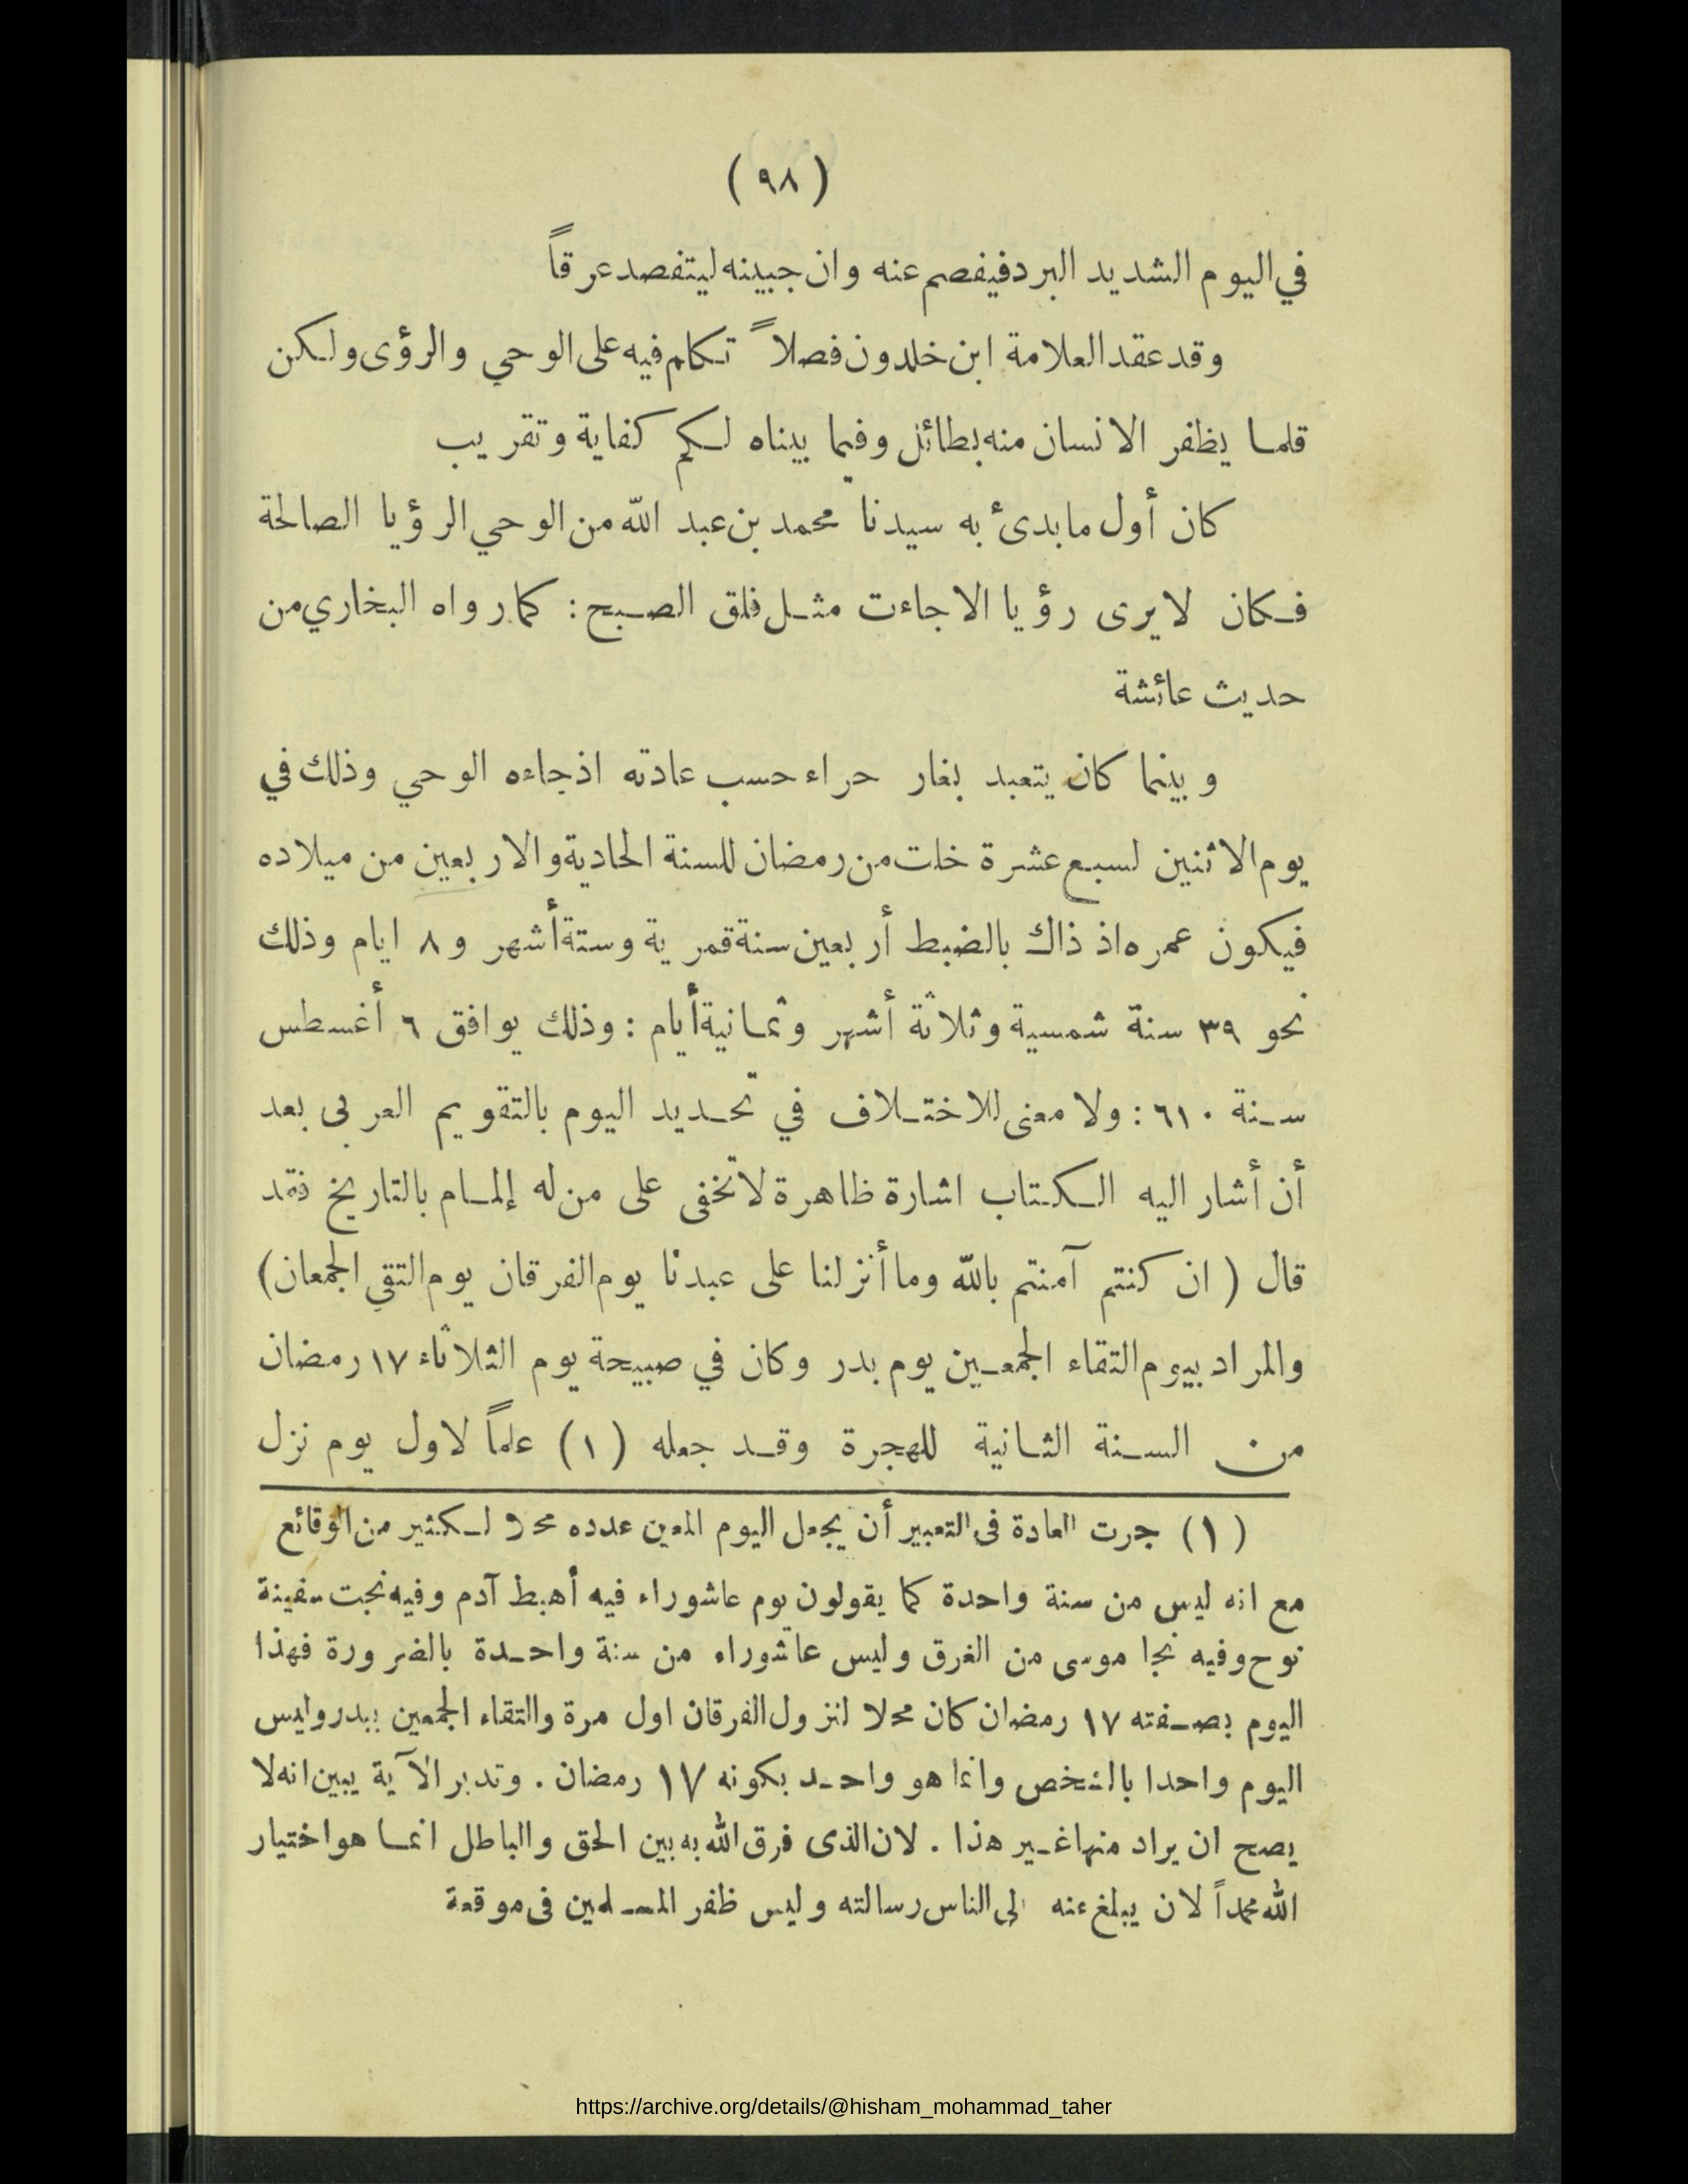 (٩٨)
في اليوم الشديد البرد فيفصم عنه وان جبينه ليتفصد عرقاً
وقد عقد العلامة ابن خلدون فصلاً تكلم فيه على الوحي والرؤى ولكن
قلما يظفر الانسان منه بطائل وفيما بيناه لكم كفاية وتقريب
كان أول ما بدئ به سيدنا محمد بن عبد الله من الوحي الرؤيا الصالحة
فكان لا يرى رؤيا الا جاءت مثل فلق الصبح : كما رواه البخاري من
حديث عائشة
وبينما كان يتعبد بغار حراء حسب عادته اذ جاءه الوحي وذلك في
يوم الاثنين لسبع عشرة خلت من رمضان للسنة الحادية والاربعين من ميلاده
فيكون عمره اذ ذاك بالضبط أربعين سنة قمرية وستة أشهر و ٨ ايام وذلك
نحو ٣٩ سنة شمسية وثلاثة أشهر وثمانية أيام : وذلك يوافق ٦ أغسطس
سنة ٦١٠ : ولا معنى للاختلاف في تحديد اليوم بالتقويم العربى بعد
أن أشار اليه الكتاب اشارة ظاهرة لا تخفى على من له إلمام بالتاريخ فقد
قال ( ان كنتم آمنتم بالله وما أنزلنا على عبدنا يوم الفرقان يوم التقي الجمعان)
والمراد بيوم التقاء الجمعين يوم بدر وكان في صبيحة يوم الثلاثاء ١٧ رمضان
من السنة الثانية للهجرة وقد جعله (١) علماً لاول يوم نزل
(١) جرت العادة فى التعبير أن يجعل اليوم المعين عدده محلا لكثير من الوقائع
مع انه ليس من سنة واحدة كما يقولون يوم عاشوراء فيه أهبط آدم وفيه نجت سفينة
نوح وفيه نجا موسى من الغرق وليس عاشوراء من سنة واحدة بالضرورة فهذا
اليوم بصفته ١٧ رمضان كان محلا لنزول الفرقان اول مرة والتقاء الجمعين ببدر وليس
اليوم واحدا بالشخص وانما هو واحد بكونه ١٧ رمضان . وتدبر الآية يبين انه لا
يصح ان يراد منها غير هذا . لان الذى فرق الله به بين الحق والباطل انما هو اختيار
الله محمداً لان يبلغ عنه الى الناس رسالته وليس ظفر المسلمين فى موقعة
https://archive.org/details/@hisham_mohammad_taher